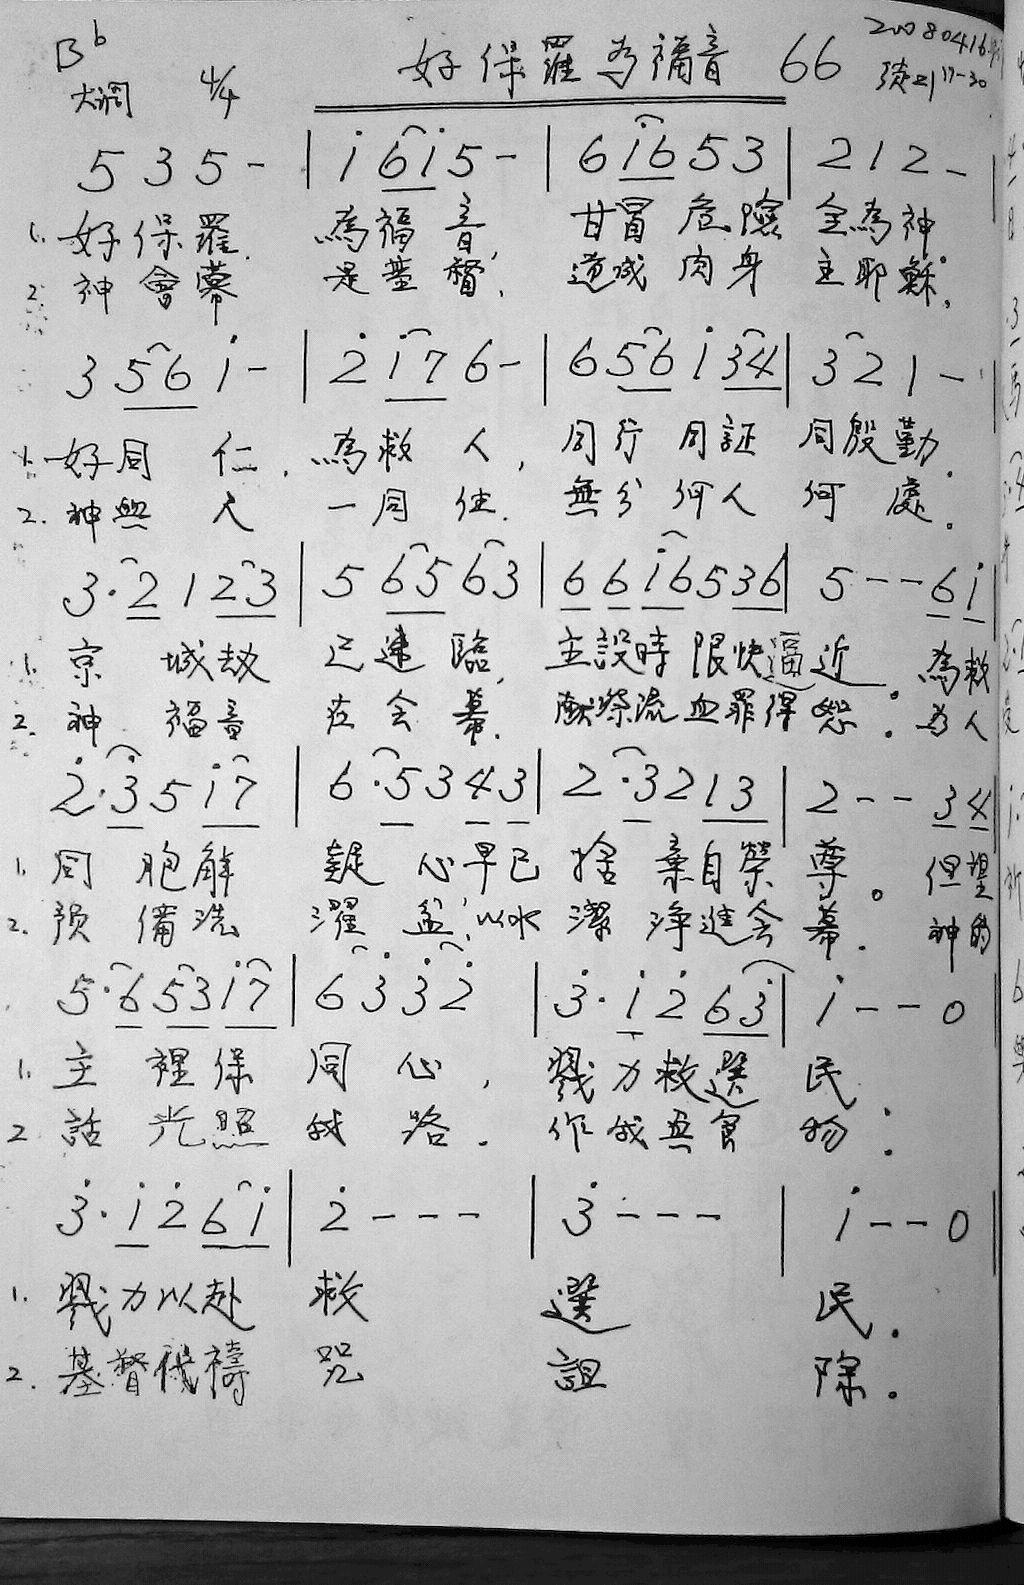 B♭ 大调 4/4 好保羅为福音 66 20080416
5 3 5 - | i 6i 5 - | 6 i6 5 3 | 2 1 2 -
1. 好保羅. 為福音, 甘冒危險全為神.
2. 神會幕是基督, 道成肉身主耶穌.
3 56 i - | 2̇ i7 6 - | 6 56 i 34 | 3 2 1 -
1. 好同仁, 為救人, 同行同証同殷勤.
2. 神與人一同住. 無分何人何處.
3·2 1 23 | 5 65 63 | 6 6 i6 5 36 | 5 - - 6i
1. 京城劫已速臨, 主設時限快逼近. 為救
2. 神福音在会幕, 獻祭流血罪得恕. 为人
2̇·3̇ 5 i7 | 6·5 3 4 3 | 2·3 2 13 | 2 - - 34
1. 同胞解疑心早已捨棄自榮尊。但望
2. 预備洗濯盆, 以水潔净進会幕. 神的
5·6 53 i7 | 6 3̇ 3̇ 2̇ | 3̇·i 2̇ 63̇ | i - - 0
1. 主裡保同心, 戮力救選民
2 話光照我路. 作成無食物.
3̇·i 2̇ 6i | 2̇ - - - | 3̇ - - - | i - - 0
1. 戮力以赴救選民.
2. 基督代禱咒詛除.